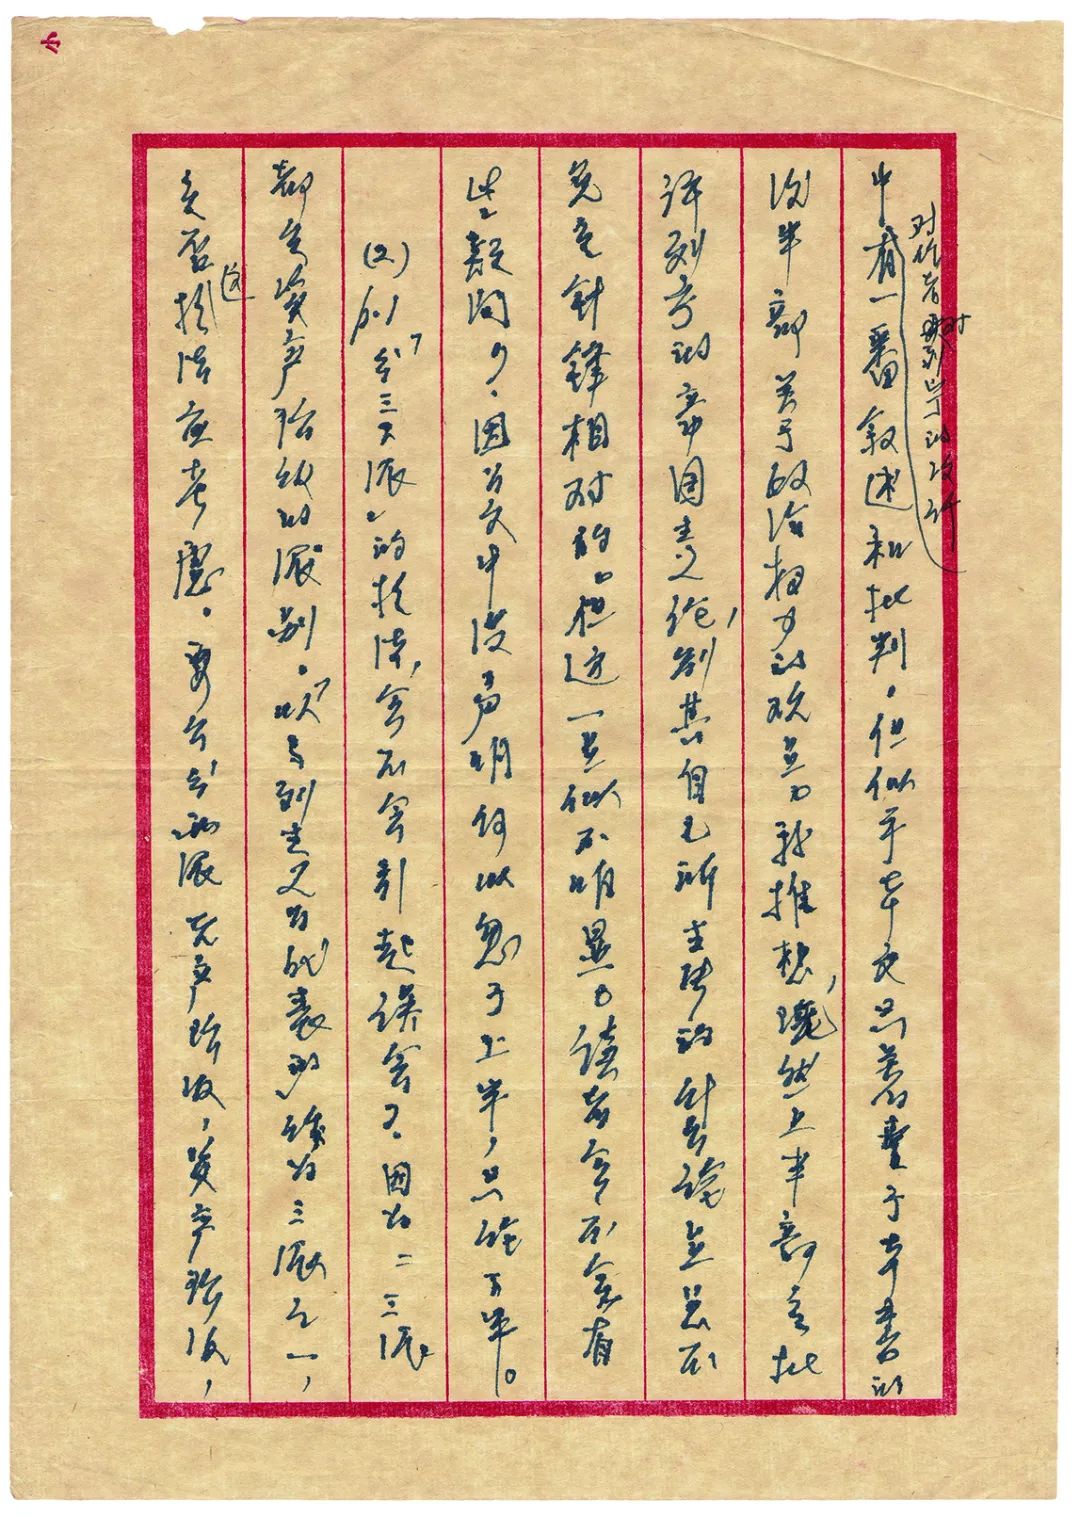 七
对作者
中有一番叙述和批判。但似乎本文只着重于本书的
后半部关于政治权力的观点。我推想,虽然上半部是批
评别方的帝国主义论,则其自己所主张的论点总不
免是针锋相对的。但这一点似不明显。读者会不会有
些疑问?因为文中没声明何以忽于上半,只论下半。
(2) p.1 分“三大派”的提法,会不会引起误会?因为二三派
都是资产阶级的派别。马列主义为代表的成为三派之一,
这
提法应考虑。要么分两派无产阶级,资产阶级,